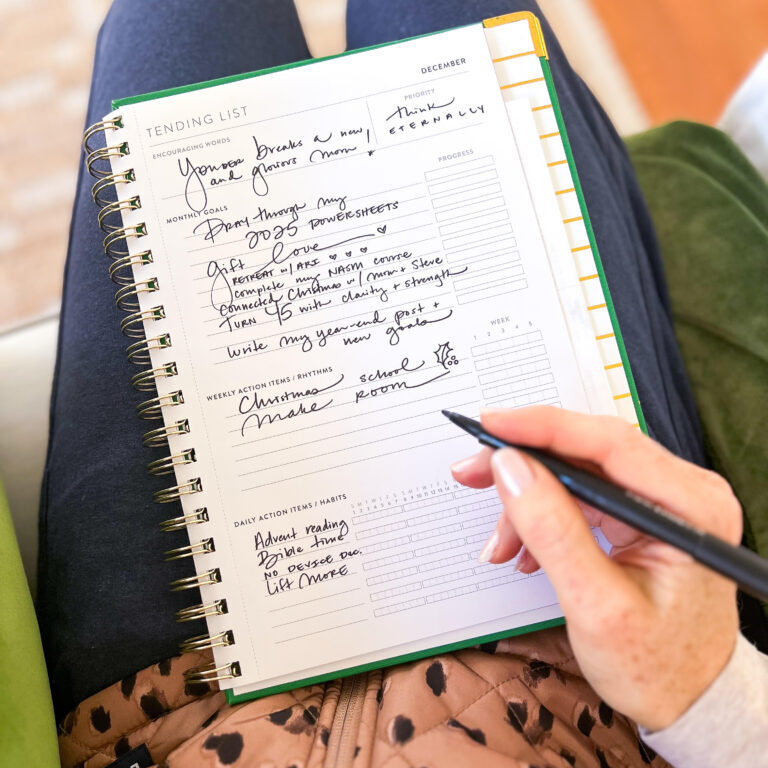 DECEMBER
TENDING LIST
ENCOURAGING WORDS
Yonder breaks a new
and glorious morn!
PRIORITY
think
ETERNALLY
MONTHLY GOALS
PROGRESS
Pray through my
2025 POWERSHEETS
gift love
RETREAT w/ ARI
complete my NASM course
connected Christmas w/ mom + Steve
TURN 45 with clarity + strength
write my year-end post +
new goals
WEEKLY ACTION ITEMS / RHYTHMS
WEEK
1 2 3 4 5
Christmas school
Make room
DAILY ACTION ITEMS / HABITS
S M T W T F S S M T W T F S
1 2 3 4 5 6 7 8 9 10 11 12 13 14
Advent reading
Bible time
NO DEVICE DEC.
Lift MORE